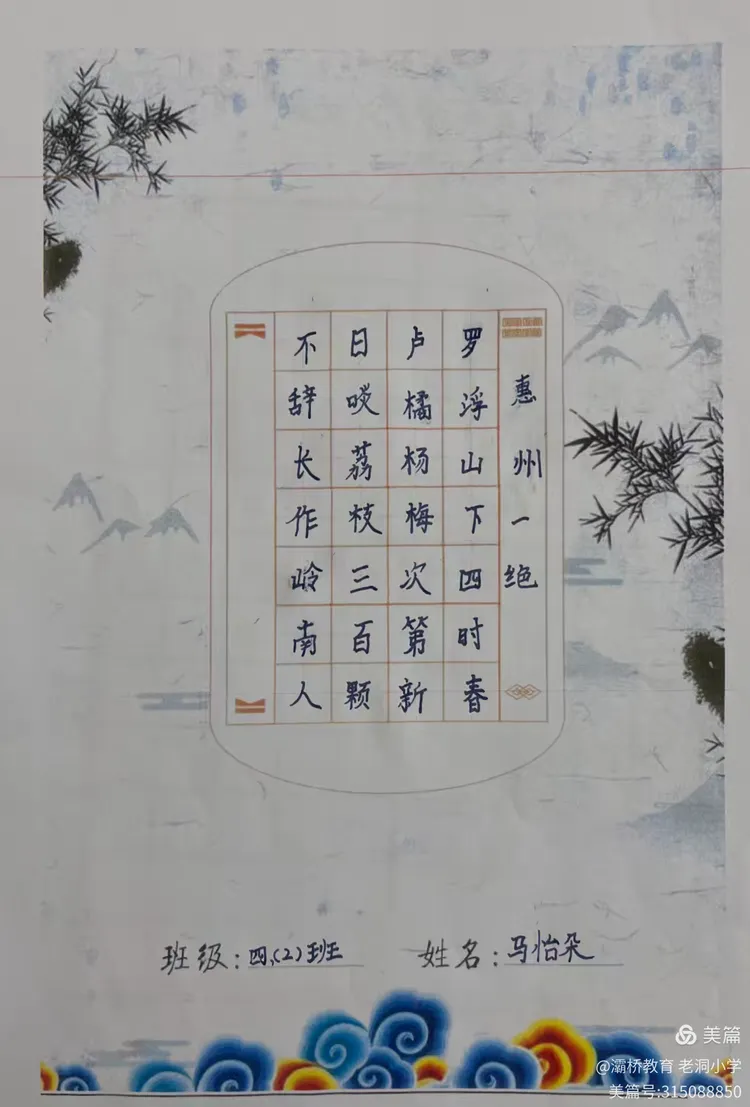 惠州一绝
罗浮山下四时春
卢橘杨梅次第新
日啖荔枝三百颗
不辞长作岭南人
班级:四(2)班
姓名:马怡朵
美篇
@灞桥教育 老洞小学
美篇号:315088850